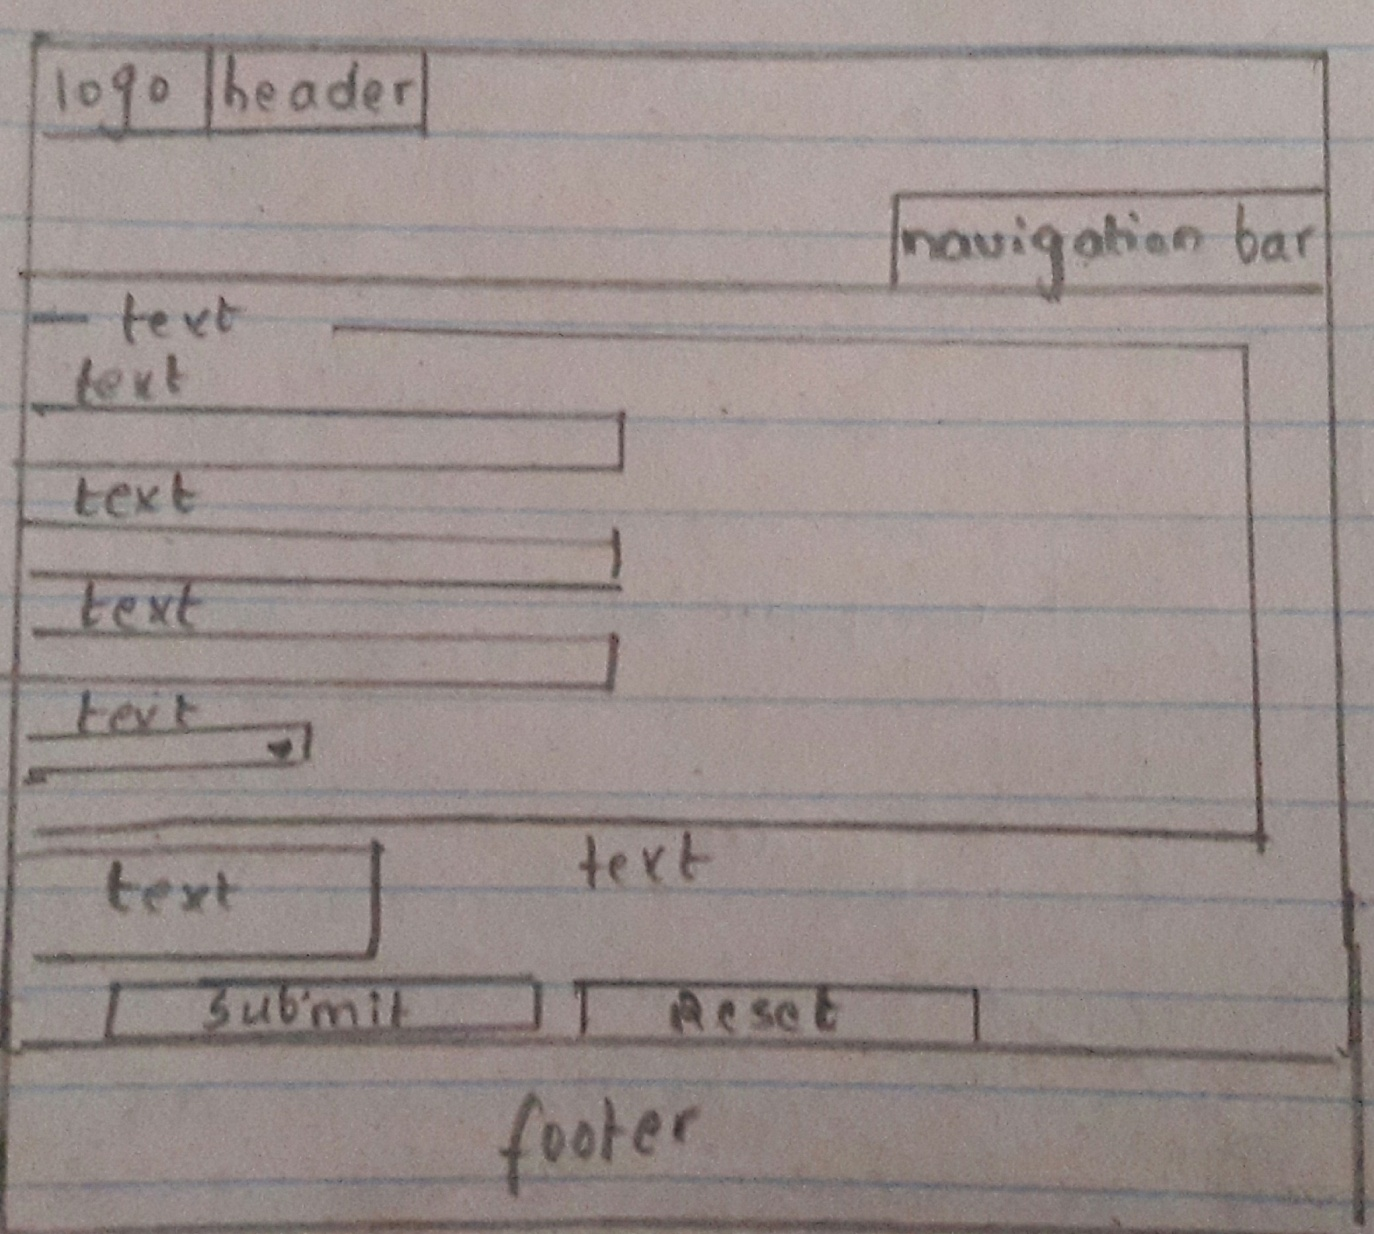 logo header
navigation bar
text
text
text
text
text
text
text
Submit Reset
footer